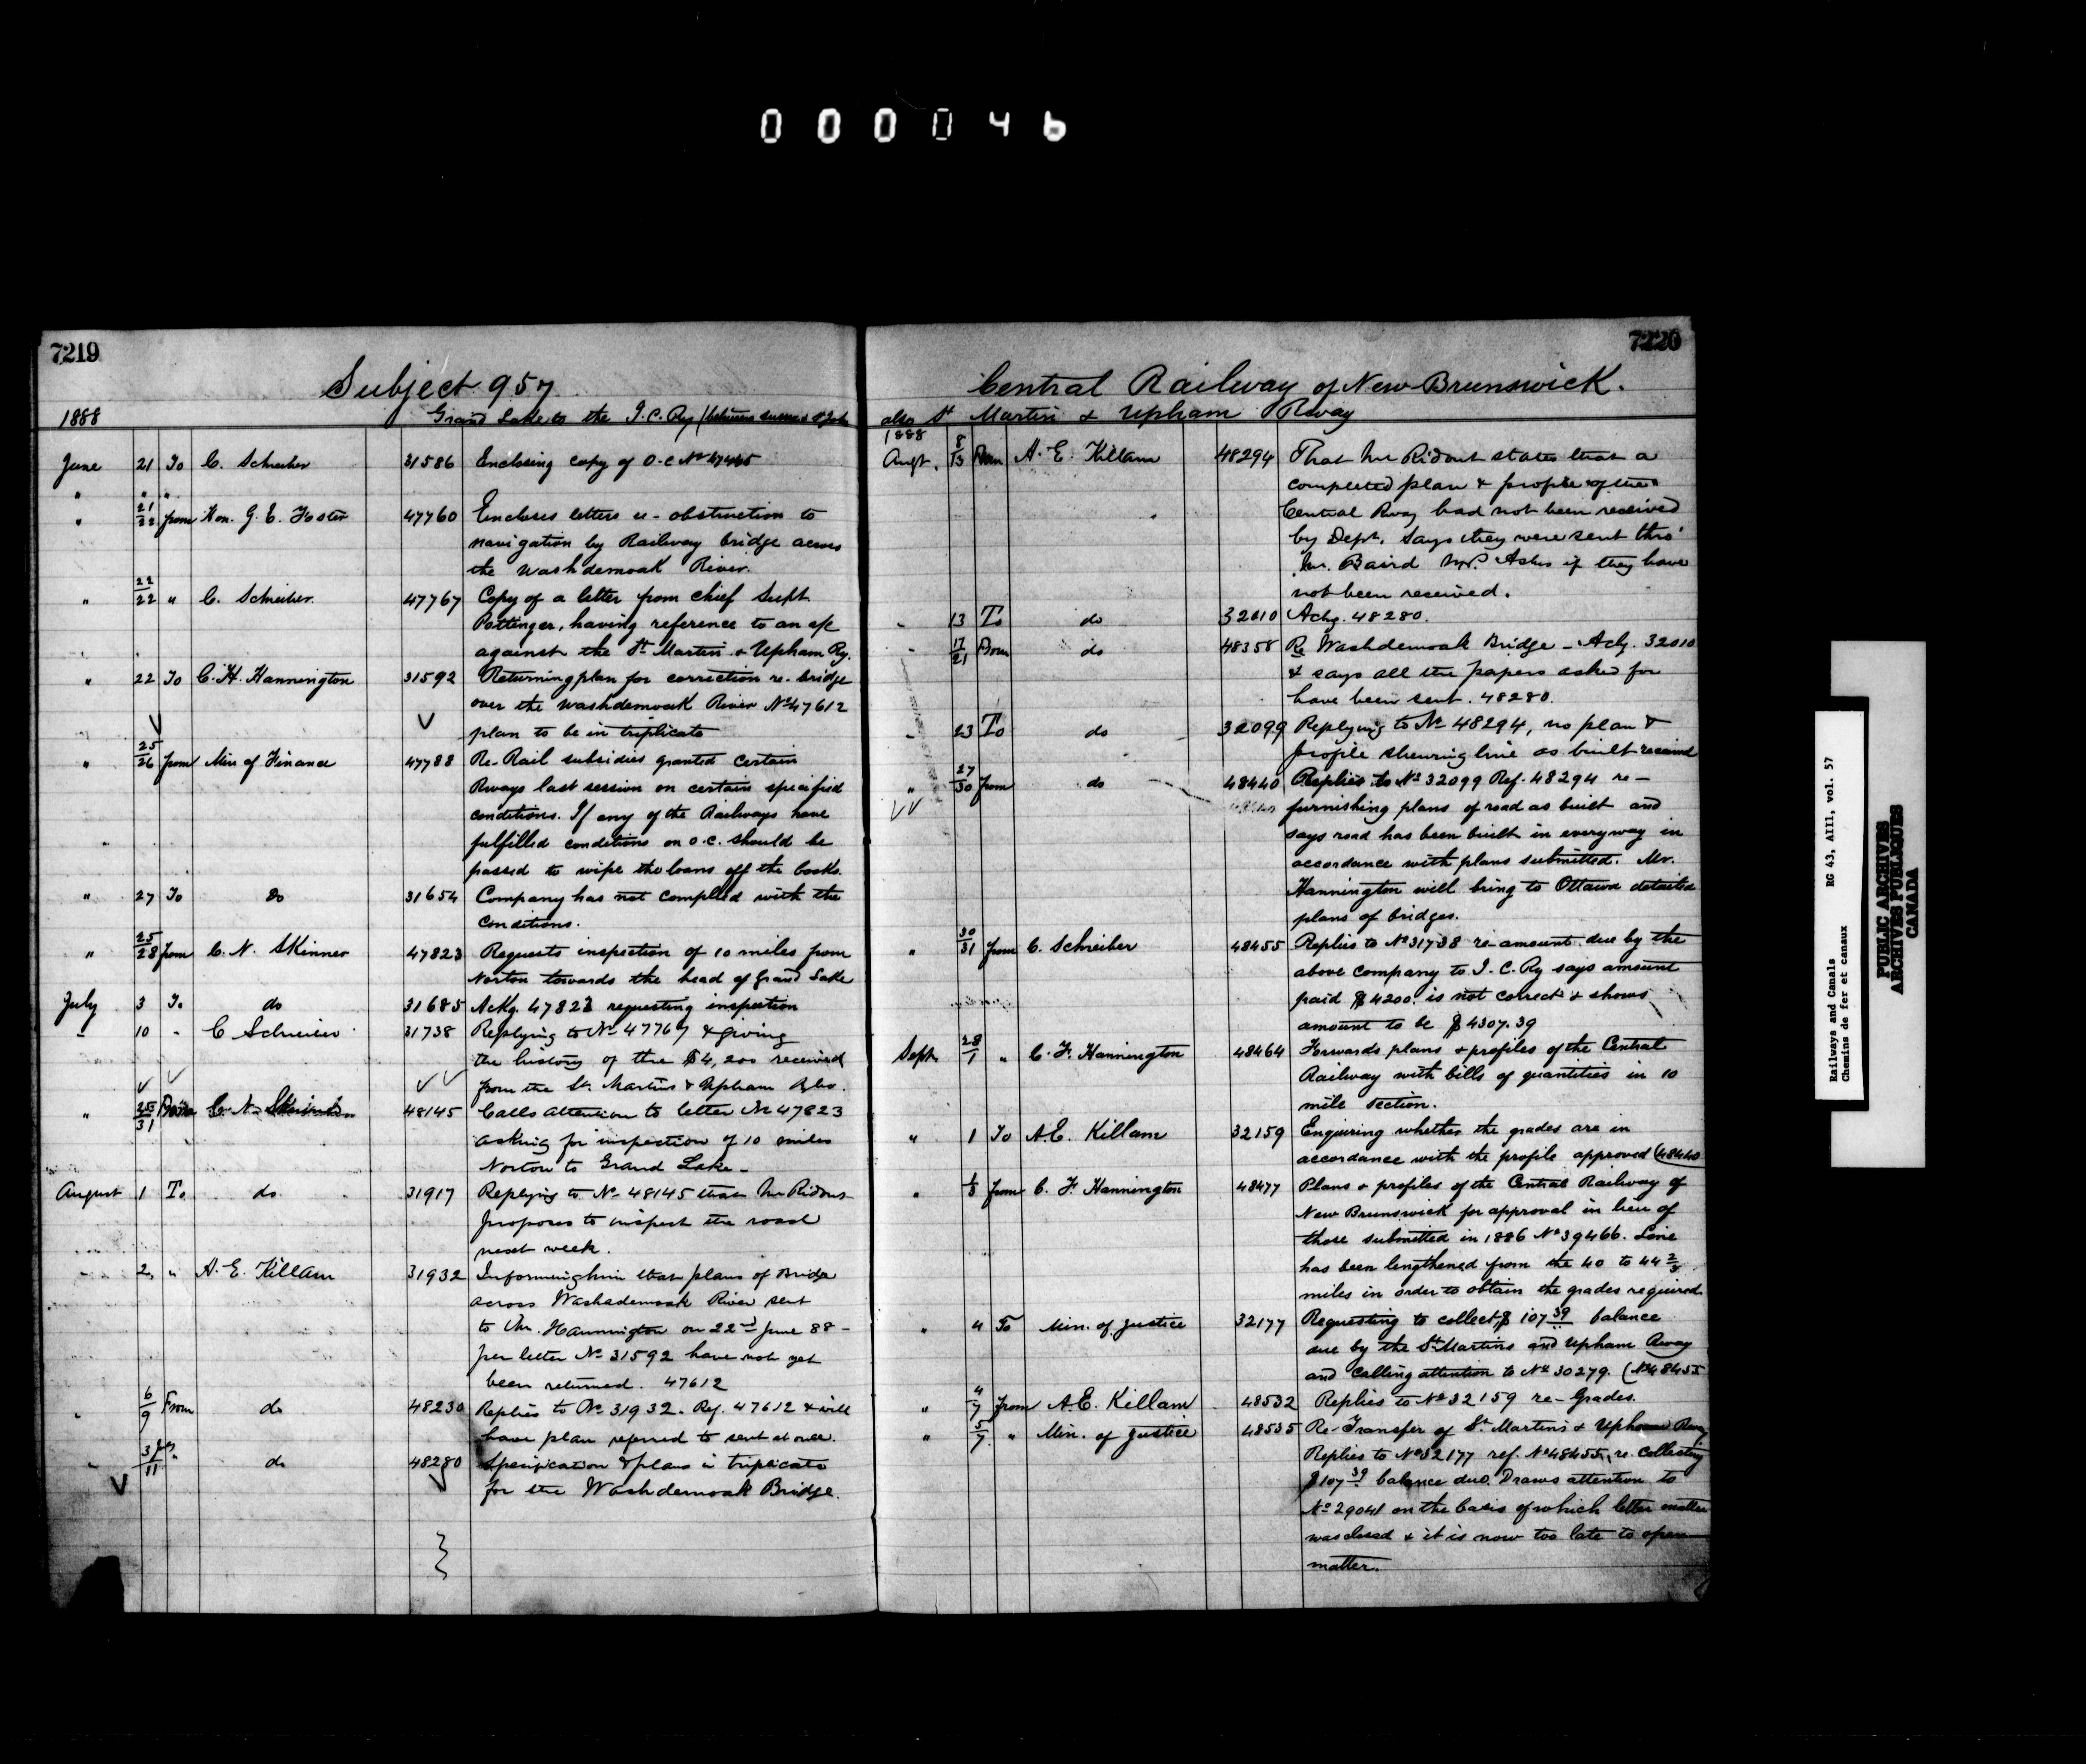 000046
7219
Subject 957
1888 Grand Lake to the I.C. Ry (between Sussex & St John
June 21 To C. Schreiber 31586 Enclosing copy of O.C No
" " "
" 21/22 from Hon. G. E. Foster 47760 Encloses letters re - obstruction to
navigation by Railway bridge across
the Washdemoak River.
" 22/22 " C. Schreiber. 47767 Copy of a letter from chief Supt
Pottinger, having reference to an a/c
against the St Martin & Upham Ry.
" 22 To C. H. Hannington 31592 Returning plan for correction re. bridge
over the Washdemoak River No 47612
plan to be in triplicate
" 25/26 from Min of Finance 47788 Re-Rail subsidies granted certain
Rways last session on certain specified
conditions. If any of the Railways have
fulfilled conditions an O.C. should be
passed to wipe the loans off the books.
" 27 To Do 31654 Company has not complied with the
conditions.
" 25/28 from C. N. Skinner 47823 Requests inspection of 10 miles from
Norton towards the head of Grand Lake
July 3 To do 31685 Ackg. 47823 requesting inspection
" 10 " C Schreiber 31738 Replying to No 47767 & giving
the history of the $4,200 received
from the St. Martins & Upham Rly Co.
" 25/31 From C. N. Skinner 48145 Calls attention to letter No 47823
asking for inspection of 10 miles
Norton to Grand Lake -
August 1 To do 31917 Replying to No 48145 that Mr Ridout
proposes to inspect the road
next week.
" 2, " A. E. Killam 31932 Informing him that plans of Bridge
across Washademoak River sent
to Mr. Hannington on 22nd June 88 -
per letter No 31592 have not yet
been returned. 47612
" 6/9 From do 48230 Replies to No 31932. Ref. 47612 & will
have plan referred to sent at once.
" 11 " do 48280 Specification & plans in triplicate
for the Washdemoak Bridge.
7220
Central Railway of New Brunswick.
also St Martin & Upham Rway
1888
Augt. 8/13 From A. E. Killam 48294 That Mr Ridout states that a
completed plan & profile of the
Central Rway had not been received
by Dept. Says they were sent thro'
Mr. Baird M.P. Asks if they have
not been received.
" 13 To do 32010 Ackg. 48280.
" 17/21 From do 48358 Re Washdemoak Bridge - Ackg. 32010
& says all the papers asked for
have been sent. 48280.
" 23 To do 32099 Replying to No 48294, no plan &
profile shewing line as built received
" 27/30 from do 48440 Replies to No 32099 Ref. 48294 re -
furnishing plans of road as built and
says road has been built in everyway in
accordance with plans submitted. Mr.
Hannington will bring to Ottawa detailed
plans of bridges.
" 30/31 from C. Schreiber 48455 Replies to No 31738 re amount due by the
above company to I. C. Ry says amount
paid $4200 is not correct & shows
amount to be $4307.39
Sept. 28/1 " C. F. Hannington 48464 Forwards plans & profiles of the Central
Railway with bills of quantities in 10
mile section.
" 1 To A.E. Killam 32159 Enquiring whether the grades are in
accordance with the profile approved (48440
" 1/3 from C. F. Hannington 48477 Plans & profiles of the Central Railway of
New Brunswick for approval in lieu of
those submitted in 1886 No 39466. Line
has been lengthened from the 40 to 44 2/3
miles in order to obtain the grades required
" 4 To Min. of Justice 32177 Requesting to collect $107 39/.. balance
due by the St Martins and Upham Rway
and calling attention to No 30279. (No 48455
" 4/7 from A.E. Killam 48532 Replies to No 32159 re-Grades.
" 5/7 " Min. of Justice 48535 Re-Transfer of St Martins & Upham Rway.
Replies to No 32177 ref. No 48455, re. collecting
$107 39 balance due. Draws attention to
No 29041 on the basis of which letter matter
was closed & it is now too late to open
matter.
Railways and Canals RG 43, AIII, vol. 57
Chemins de fer et canaux
PUBLIC ARCHIVES
ARCHIVES PUBLIQUES
CANADA